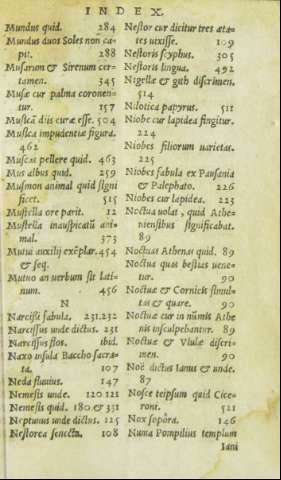 INDEX.
Mundus quid. 284
Mundus duos Soles non ca-
pit. 288
Musarum & Sirenum cer-
tamen. 345
Musæ cur palma coronen-
tur. 157
Musicā diis curæ esse. 504
Musica impudentiæ figura.
462
Muscas pellere quid. 463
Mus albus quid. 259
Musmon animal quid signi
ficet. 515
Mustella ore parit. 12
Mustella inauspicatū ani-
mal. 373
Mutui auxilij exēplar. 454
& seq.
Mutuo an verbum sit lati-
num. 456
N
Narcissi fabula. 231.232
Narcissus unde dictus. 231
Narcissus flos. ibid.
Naxo insula Baccho sacra-
ta. 107
Neda fluuius. 147
Nemesis unde. 120 121
Nemesis quid. 180.& 331
Neptunus unde dictus. 125
Nestorea senecta. 108
Nestor cur dicitur tres æta-
tes uixisse. 109
Nestoris scyphus. 305
Nestoris lingua. 492
Nigella & gith discrimen.
514
Nilotica papyrus. 511
Niobe cur lapidea fingitur.
224
Niobes filiorum uarietas.
225
Niobes fabula ex Pausania
& Palephato. 226
Niobes cur lapidea. 223
Noctua uolat, quid Athe-
niensibus significabat.
89
Noctuas Athenas quid. 89
Noctua quas bestias uene-
tur. 90
Noctuæ & Cornicis simul-
tas & quare. 90
Noctuæ cur in nūmis Athe
nis insculpebantur. 89
Noctuæ & Vlulæ discri-
men. 90
Noë dictus Ianus & unde.
87
Nosce teipsum quid Cice-
roni. 521
Nox sopora. 146
Numa Pompilius templum
Iani